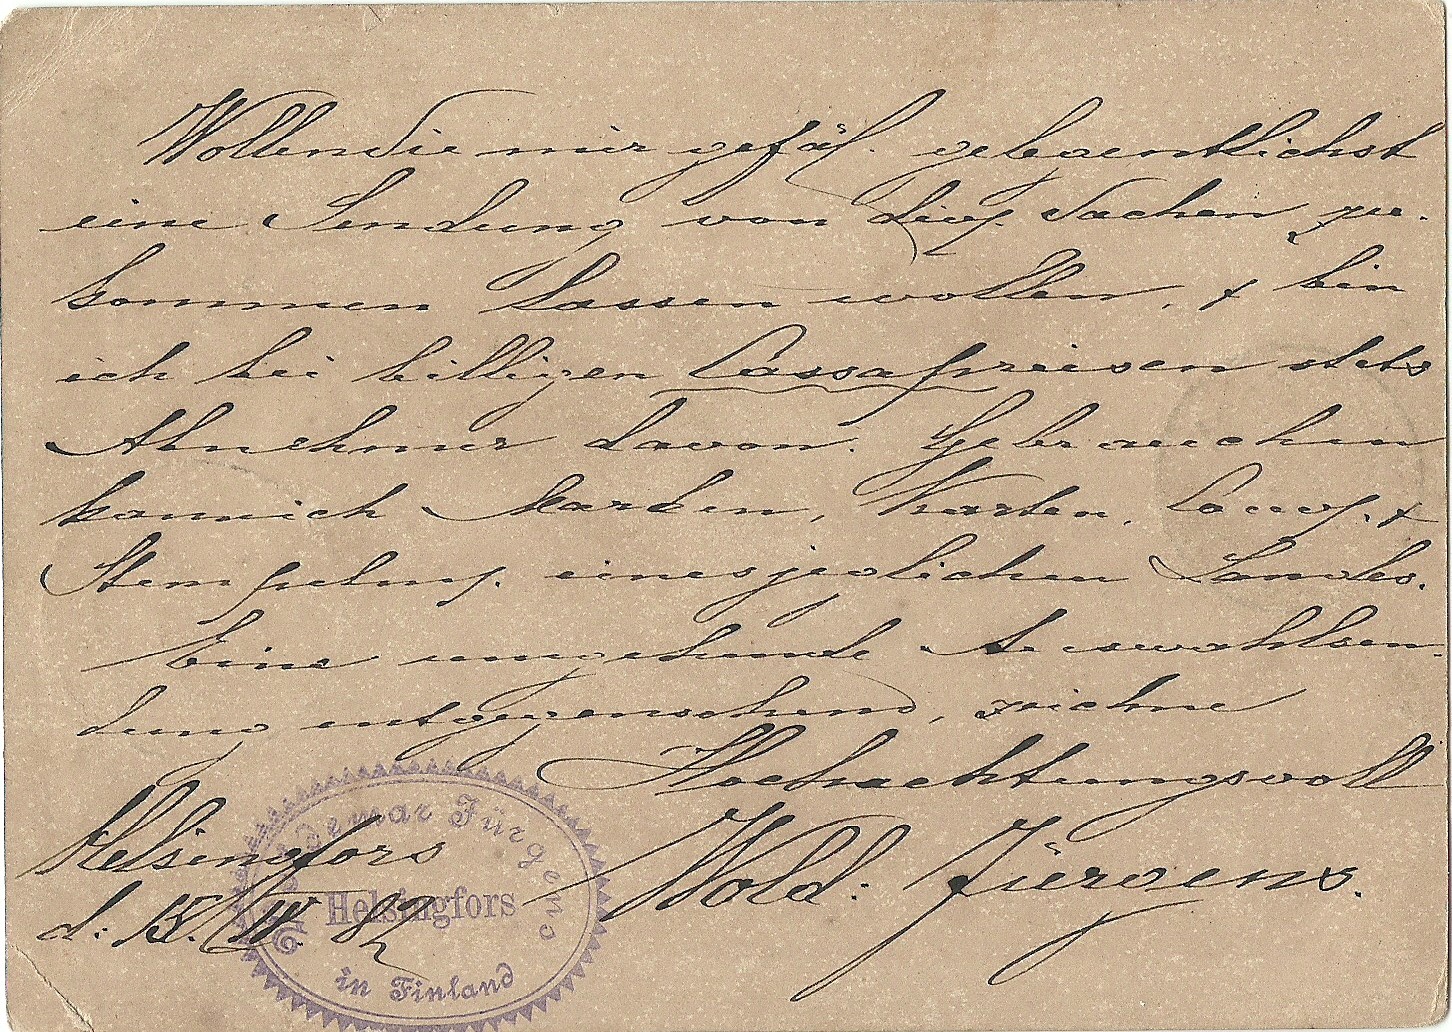 Wollen Sie mir gefäl. gelegentlichst
eine Sendung von div. Sachen zu-
kommen lassen wollen, + bin
ich bei billigen Cassapreisen stets
Abnehmer davon. Gebrauchen
kann ich Marken, Karten, Couv. +
Stempelm. eines jeglichen Landes.
Eine umgehende Auswahlsen-
dung entgegensehend, zeichne
Hochachtungsvoll
Wold: Jürgens.
Helsingfors
d: 15. IV. 82
Woldemar Jürgens
Helsingfors
in Finland